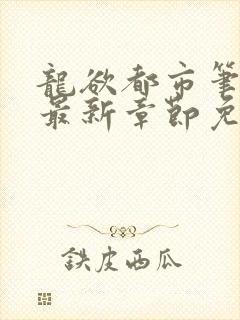 龍欲都市筆
最新章節免
鉄皮西瓜